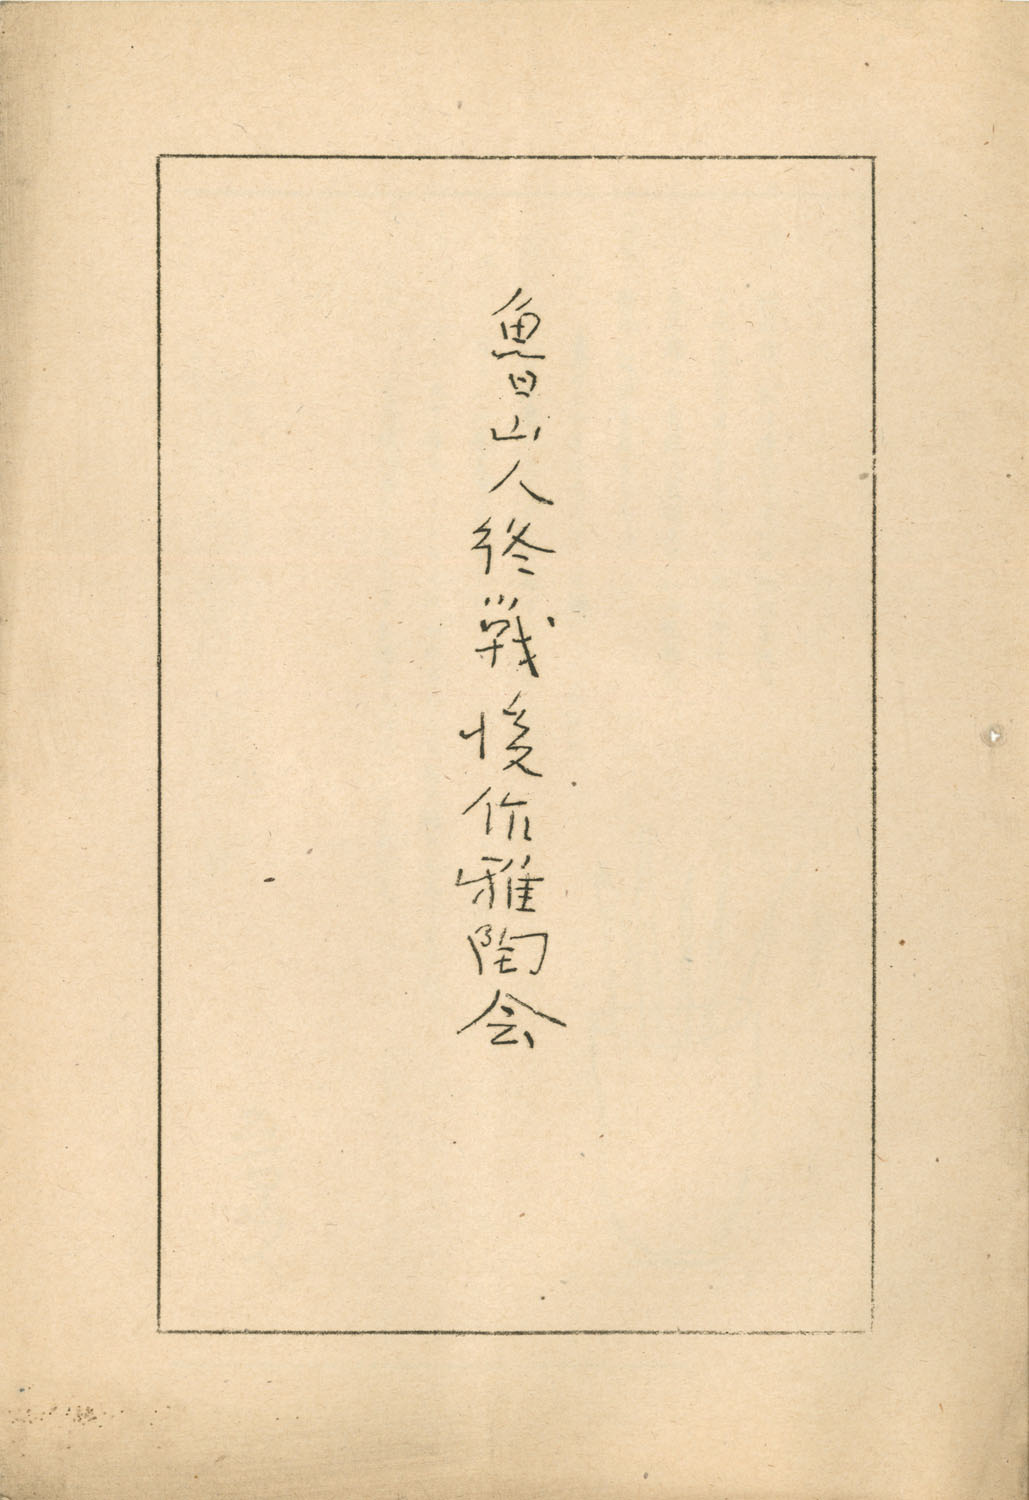 魯山人終戦後作雅陶会